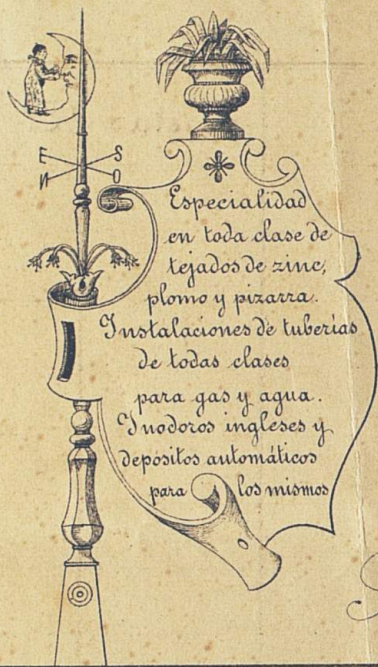 E S
N O
Especialidad
en toda clase de
tejados de zinc,
plomo y pizarra.
Instalaciones de tuberías
de todas clases
para gas y agua.
Inodoros ingleses y
depósitos automáticos
para los mismos